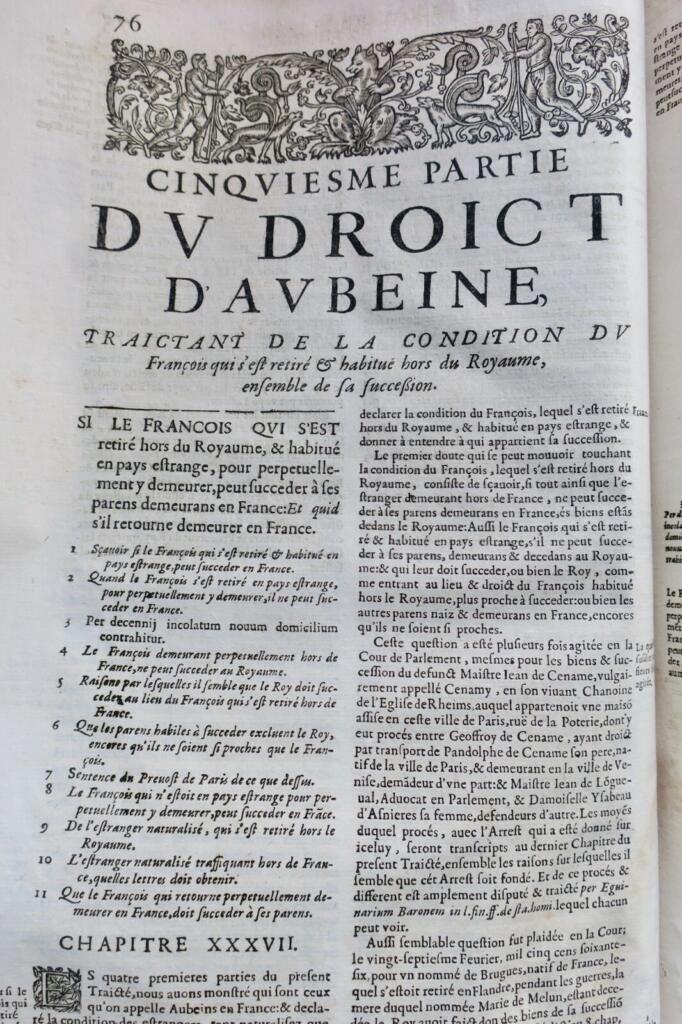 76
CINQVIESME PARTIE
DV DROICT
D'AVBEINE,
TRAICTANT DE LA CONDITION DV
François qui s'est retiré & habitué hors du Royaume,
ensemble de sa succession.
SI LE FRANCOIS QVI S'EST
retiré hors du Royaume, & habitué
en pays estrange, pour perpetuelle-
ment y demeurer, peut succeder à ses
parens demeurans en France: Et quid
s'il retourne demeurer en France.
1 Sçauoir si le François qui s'est retiré & habitué en
pays estrange, peut succeder en France.
2 Quand le François s'est retiré en pays estrange,
pour perpetuellement y demeurer, il ne peut suc-
ceder en France.
3 Per decennij incolatum nouum domicilium
contrahitur.
4 Le François demeurant perpetuellement hors de
France, ne peut succeder au Royaume.
5 Raisons par lesquelles il semble que le Roy doit suc-
ceder au lieu du François qui s'est retiré hors de
France.
6 Que les parens habiles à succeder excluent le Roy,
encores qu'ils ne soient si proches que le Fran-
çois.
7 Sentence du Preuost de Paris de ce que dessus.
8 Le François qui n'estoit en pays estrange pour per-
petuellement y demeurer, peut succeder en Frãce.
9 De l'estranger naturalisé, qui s'est retiré hors le
Royaume.
10 L'estranger naturalisé traffiquant hors de Fran-
ce, quelles lettres doit obtenir.
11 Que le François qui retourne perpetuellement de-
meurer en France, doit succeder à ses parens.
CHAPITRE XXXVII.
ES quatre premieres parties du present
Traicté, nous auons monstré qui sont ceux
qu'on appelle Aubeins en France: & decla-
ré la condition des estrangers, tant naturalisez que
declarer la condition du François, lequel s'est retiré
hors du Royaume, & habitué en pays estrange, &
donner à entendre à qui appartient sa succession.
Le premier doute qui se peut mouuoir touchant
la condition du François, lequel s'est retiré hors du
Royaume, consiste de sçauoir, si tout ainsi que l'e-
stranger demeurant hors de France, ne peut succe-
der à ses parens demeurans en France, és biens estãs
dedans le Royaume: Aussi le François qui s'est reti-
ré & habitué en pays estrange, s'il ne peut succe-
der à ses parens, demeurans & decedans au Royau-
me: & qui leur doit succeder, ou bien le Roy, com-
me entrant au lieu & droict du François habitué
hors le Royaume, plus proche à succeder: ou bien les
autres parens naiz & demeurans en France, encores
qu'ils ne soient si proches.
Ceste question a esté plusieurs fois agitée en la
Cour de Parlement, mesmes pour les biens & suc-
cession du defunct Maistre Iean de Cename, vulgai-
rement appellé Cenamy, en son viuant Chanoine
de l'Eglise de Rheims, auquel appartenoit vne maisõ
assise en ceste ville de Paris, ruë de la Poterie, dont y
eut procés entre Geoffroy de Cename, ayant droict
par transport de Pandolphe de Cename son pere, na-
tif de la ville de Paris, & demeurant en la ville de Ve-
nise, demãdeur d'vne part: & Maistre Iean de Lõgue-
ual, Aduocat en Parlement, & Damoiselle Ysabeau
d'Asnieres sa femme, defendeurs d'autre. Les moyẽs
duquel procés, auec l'Arrest qui a esté donné sur
iceluy, seront transcripts au dernier Chapitre du
present Traicté, ensemble les raisons sur lesquelles il
semble que cét Arrest soit fondé. Et de ce procés &
different est amplement disputé & traicté per Egui-
narium Baronem in l. fin. ff. de sta. homi. lequel chacun
peut voir.
Aussi semblable question fut plaidée en la Cour,
le vingt-septiesme Feurier, mil cinq cens soixante-
six, pour vn nommé de Brugues, natif de France, le-
quel s'estoit retiré en Flandre, pendant les guerres, la
mere duquel nommée Marie de Melun, estant dece-
dée, le Roy auoit faict don des biens de sa successiõ